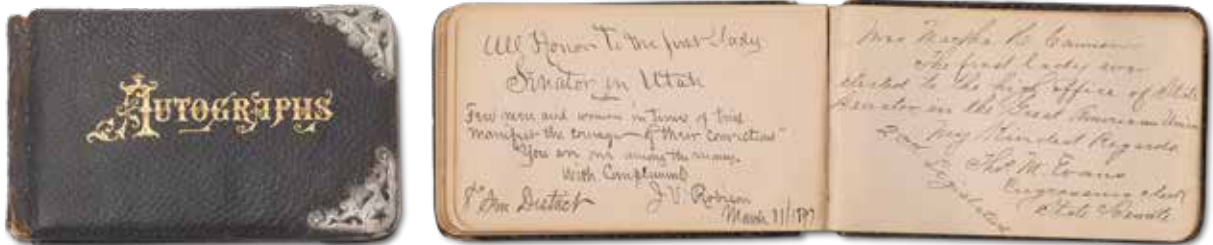 AUTOGRAPHS
All Honor to the first Lady
Senator in Utah
Few men and women in times of trial
manifest the courage of their convictions"
"You are one among the many.
With Compliments
J. V. Robison
8th Dist
March 11/1897
Mrs Martha H. Cannon
The first lady ever
elected to the high office of State
Senator in the Great American Union
my Kindest Regards
Thos M. Evans
Engrossing clerk
State Senate
2nd Legislature